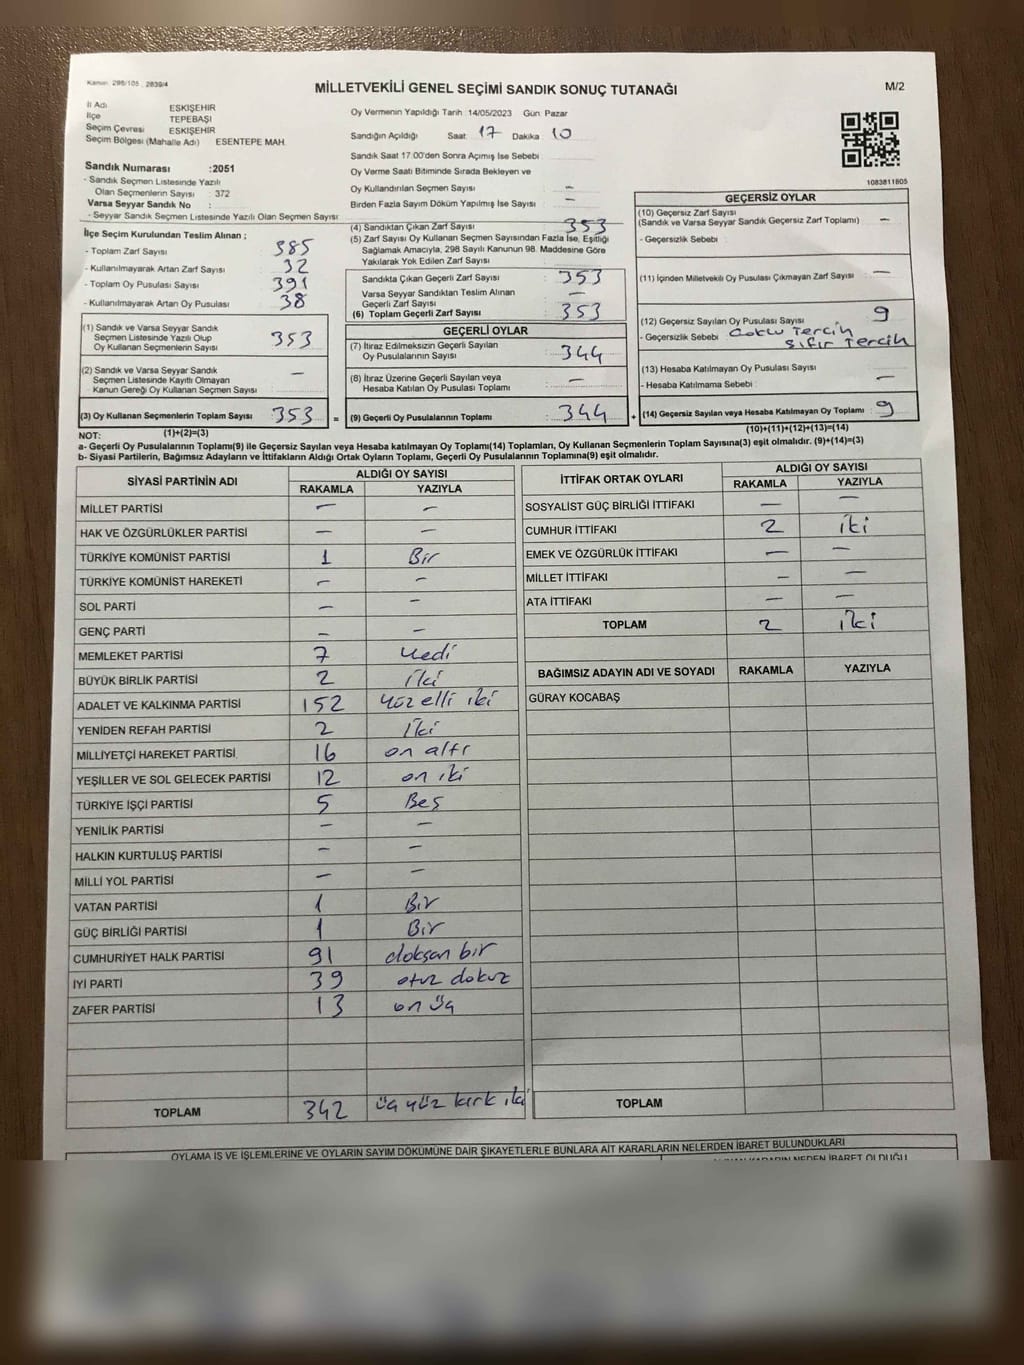 Kanun: 298/105, 2839/4
MİLLETVEKİLİ GENEL SEÇİMİ SANDIK SONUÇ TUTANAĞI
M/2
İl Adı ESKİŞEHİR
İlçe TEPEBAŞI
Seçim Çevresi ESKİŞEHİR
Seçim Bölgesi (Mahalle Adı) ESENTEPE MAH.
Oy Vermenin Yapıldığı Tarih :14/05/2023 Gün: Pazar
Sandığın Açıldığı Saat: 17 Dakika 10
Sandık Saat 17.00'den Sonra Açılmış İse Sebebi
Oy Verme Saati Bitiminde Sırada Bekleyen ve
Oy Kullandırılan Seçmen Sayısı : –
Birden Fazla Sayım Döküm Yapılmış İse Sayısı : –
1083811805
Sandık Numarası :2051
- Sandık Seçmen Listesinde Yazılı
Olan Seçmenlerin Sayısı : 372
Varsa Seyyar Sandık No :
- Seyyar Sandık Seçmen Listesinde Yazılı Olan Seçmen Sayısı :
İlçe Seçim Kurulundan Teslim Alınan ;
- Toplam Zarf Sayısı : 385
- Kullanılmayarak Artan Zarf Sayısı : 32
- Toplam Oy Pusulası Sayısı : 391
- Kullanılmayarak Artan Oy Pusulası : 38
(1) Sandık ve Varsa Seyyar Sandık
Seçmen Listesinde Yazılı Olup
Oy Kullanan Seçmenlerin Sayısı : 353
(2) Sandık ve Varsa Seyyar Sandık
Seçmen Listesinde Kayıtlı Olmayan
Kanun Gereği Oy Kullanan Seçmen Sayısı : –
(3) Oy Kullanan Seçmenlerin Toplam Sayısı : 353 =
(1)+(2)=(3)
(4) Sandıktan Çıkan Zarf Sayısı : 353
(5) Zarf Sayısı Oy Kullanan Seçmen Sayısından Fazla İse, Eşitliği
Sağlamak Amacıyla, 298 Sayılı Kanunun 98. Maddesine Göre
Yakılarak Yok Edilen Zarf Sayısı :
Sandıkta Çıkan Geçerli Zarf Sayısı : 353
Varsa Seyyar Sandıktan Teslim Alınan
Geçerli Zarf Sayısı : –
(6) Toplam Geçerli Zarf Sayısı : 353
GEÇERLİ OYLAR
(7) İtiraz Edilmeksizin Geçerli Sayılan
Oy Pusulalarının Sayısı : 344
(8) İtiraz Üzerine Geçerli Sayılan veya
Hesaba Katılan Oy Pusulası Toplamı : –
(9) Geçerli Oy Pusulalarının Toplamı : 344 +
GEÇERSİZ OYLAR
(10) Geçersiz Zarf Sayısı
(Sandık ve Varsa Seyyar Sandık Geçersiz Zarf Toplamı) : –
- Geçersizlik Sebebi :
(11) İçinden Milletvekili Oy Pusulası Çıkmayan Zarf Sayısı : –
(12) Geçersiz Sayılan Oy Pusulası Sayısı : 9
- Geçersizlik Sebebi : Çoklu Tercih
Sıfır Tercih
(13) Hesaba Katılmayan Oy Pusulası Sayısı :
- Hesaba Katılmama Sebebi : –
(14) Geçersiz Sayılan veya Hesaba Katılmayan Oy Toplamı : 9
(10)+(11)+(12)+(13)=(14)
NOT:
a- Geçerli Oy Pusulalarının Toplamı(9) ile Geçersiz Sayılan veya Hesaba katılmayan Oy Toplamı(14) Toplamları, Oy Kullanan Seçmenlerin Toplam Sayısına(3) eşit olmalıdır. (9)+(14)=(3)
b- Siyasi Partilerin, Bağımsız Adayların ve İttifakların Aldığı Ortak Oyların Toplamı, Geçerli Oy Pusulalarının Toplamına(9) eşit olmalıdır.
SİYASİ PARTİNİN ADI ALDIĞI OY SAYISI
RAKAMLA YAZIYLA
MİLLET PARTİSİ – –
HAK VE ÖZGÜRLÜKLER PARTİSİ – –
TÜRKİYE KOMÜNİST PARTİSİ 1 Bir
TÜRKİYE KOMÜNİST HAREKETİ – –
SOL PARTİ – –
GENÇ PARTİ – –
MEMLEKET PARTİSİ 7 Yedi
BÜYÜK BİRLİK PARTİSİ 2 İki
ADALET VE KALKINMA PARTİSİ 152 Yüz elli iki
YENİDEN REFAH PARTİSİ 2 İki
MİLLİYETÇİ HAREKET PARTİSİ 16 on altı
YEŞİLLER VE SOL GELECEK PARTİSİ 12 on iki
TÜRKİYE İŞÇİ PARTİSİ 5 Beş
YENİLİK PARTİSİ – –
HALKIN KURTULUŞ PARTİSİ – –
MİLLİ YOL PARTİSİ – –
VATAN PARTİSİ 1 Bir
GÜÇ BİRLİĞİ PARTİSİ 1 Bir
CUMHURİYET HALK PARTİSİ 91 doksan bir
İYİ PARTİ 39 otuz dokuz
ZAFER PARTİSİ 13 on üç
TOPLAM 342 üç yüz kırk iki
İTTİFAK ORTAK OYLARI ALDIĞI OY SAYISI
RAKAMLA YAZIYLA
SOSYALİST GÜÇ BİRLİĞİ İTTİFAKI – –
CUMHUR İTTİFAKI 2 iki
EMEK VE ÖZGÜRLÜK İTTİFAKI – –
MİLLET İTTİFAKI – –
ATA İTTİFAKI – –
TOPLAM 2 iki
BAĞIMSIZ ADAYIN ADI VE SOYADI RAKAMLA YAZIYLA
GÜRAY KOCABAŞ
TOPLAM
OYLAMA İŞ VE İŞLEMLERİNE VE OYLARIN SAYIM DÖKÜMÜNE DAİR ŞİKAYETLERLE BUNLARA AİT KARARLARIN NELERDEN İBARET BULUNDUKLARI